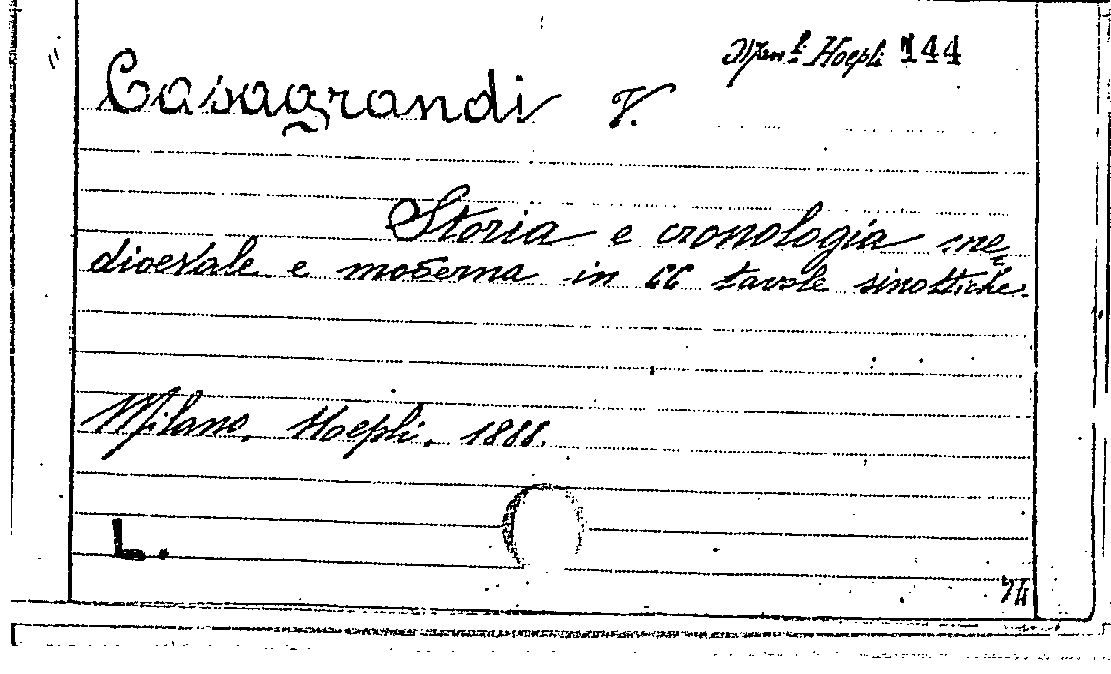 Man.li Hoepli 144
Casagrandi V.
Storia e cronologia me-
dioevale e moderna in 66 tavole sinottiche.
Milano, Hoepli, 1888.
L.